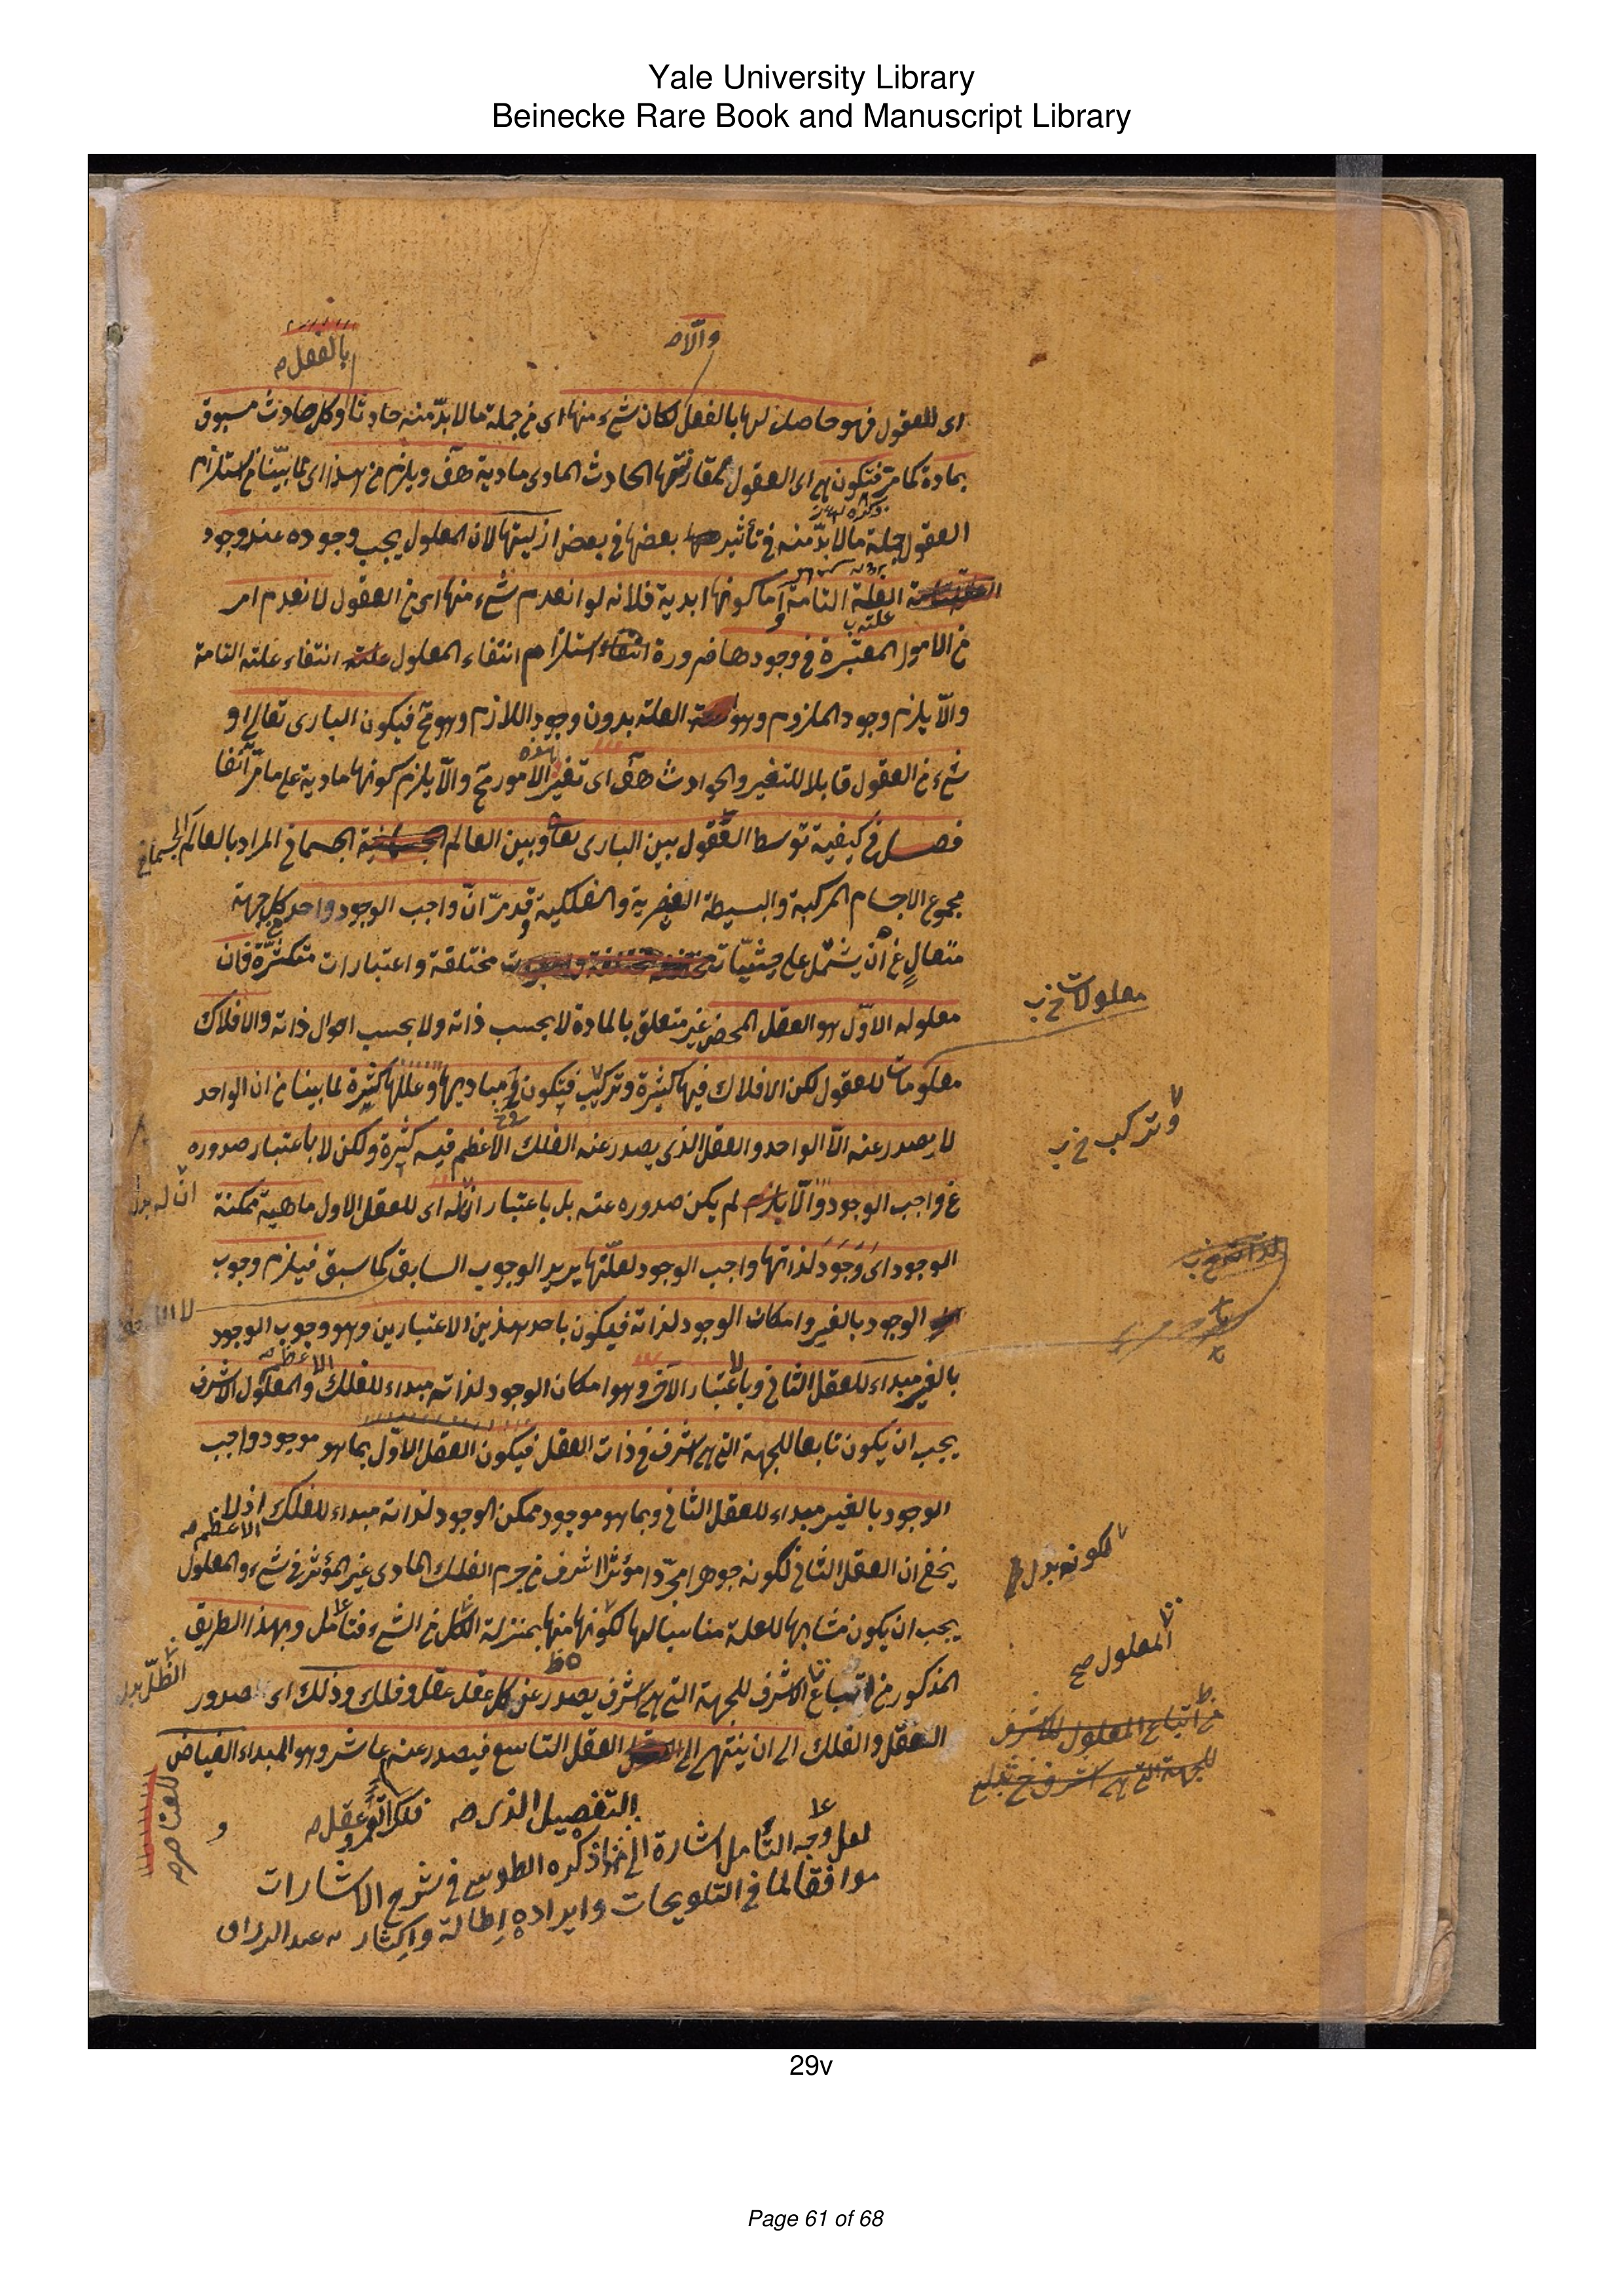 Yale University Library
Beinecke Rare Book and Manuscript Library
والّا صـ
بالفعل صـ
اى للعقول فهو حاصل لها بالفعل لكان شىء منها اى من جملة ما لا بدّ منه حادثا وكل حادث مسبوق
بمادة كما مرّ فتكون هى اى العقول لمقارنتها الحادث المادى مادية هف ويلزم من هذا اى مما بيّنا من استلزام
العقول جملة ما لا بدّ منه فى تأثير بعضها فى بعض ازليتها لان المعلول يجب وجوده عند وجود
العلة التامة واما كونها ابدية فلانه لو انعدم شىء منها اى من العقول لانعدم امر
من الامور المعتبرة فى وجودها ضرورة استلزام انتفاء المعلول انتفاء علته التامة
والّا يلزم وجود الملزوم وهو العلة بدون وجود اللازم وهو مح فيكون البارى تعالى او
شىء من العقول قابلا للتغير والحوادث هف اى تغير الامور مح والّا يلزم كونها مادية على ما مرّ آنفا
فصل فى كيفية توسط العقول بين البارى تعا وبين العالم الجسمانى المراد بالعالم الجسمانى
مجموع الاجسام المركبة والبسيطة العنصرية والفلكية وقد مرّ انّ واجب الوجود واحد من كل جهة
متعالٍ عن ان يشتمل على حيثيّات مختلفة واعتبارات متكثّرة فان
معلوله الاوّل هو العقل المحض غير متعلق بالمادة لا بحسب ذاته ولا بحسب احوال ذاته والافلاك
معلولات خ ب
معلومات للعقول لكن الافلاك فيها كثيرة وتركيب فيكون فى مباديها وعللها كثيرة لما بينا من ان الواحد
وتركب خ ب
لا يصدر عنه الّا الواحد والعقل الذى يصدر عنه الفلك الاعظم فيه كثيرة ولكن لا باعتبار صدوره
عن واجب الوجود والّا لم يكن صدوره عنه بل باعتبار ان له اى للعقل الاول ماهية ممكنة
انّ له بدل
الوجود اى وجود لذاتها واجب الوجود لعلّتها يريد الوجوب السابق كما سبق فيلزم وجوب
الوجود بالغير وامكان الوجود لذاته فيكون باحد هذين الاعتبارين وهو وجوب الوجود
بالغير مبداء للعقل الثانى وباعتبار الآخر وهو امكان الوجود لذاته مبداء للفلك الاعظم صـ والمعلول الاشرف
يجب ان يكون تابعا للجهة التى هى اشرف فى ذات العقل فيكون العقل الاوّل بما هو موجود واجب
الوجود بالغير مبداء للعقل الثانى وبما هو موجود ممكن الوجود لذاته مبداء للفلك الاعظم صـ اذ لا
يخفى ان العقل الثانى لكونه جوهرا مجرّدا مؤثرا اشرف من جرم الفلك المادى غير المؤثر فى شىء والمعلول
لكونه بدل
يجب ان يكون مشابها للعلة مناسبا لها لكونها منها بمنزلة الظل من الشىء فتأمل وبهذا الطريق
المعلول صح
الظّلّ بدل
المذكور من اتباع الاشرف للجهة التى هى اشرف يصدر عن كل عقل عقل وفلك وذلك اى صدور
من اتباع المعلول للاشرف
للجهة التى هى اشرف خ بدل
العقل والفلك الى ان ينتهى الى العقل التاسع فيصدر عنه عاشر وهو المبداء الفياض
للعناصر صـ
فلك القمر وعقل صـ
لعل وجه التأمل اشارة الى التفصيل الذى صـ ذكره الطوسى فى شرح الاشارات
موافقا لما فى التلويحات وايراده اطالة واكثار عبد الرزاق
29v
Page 61 of 68